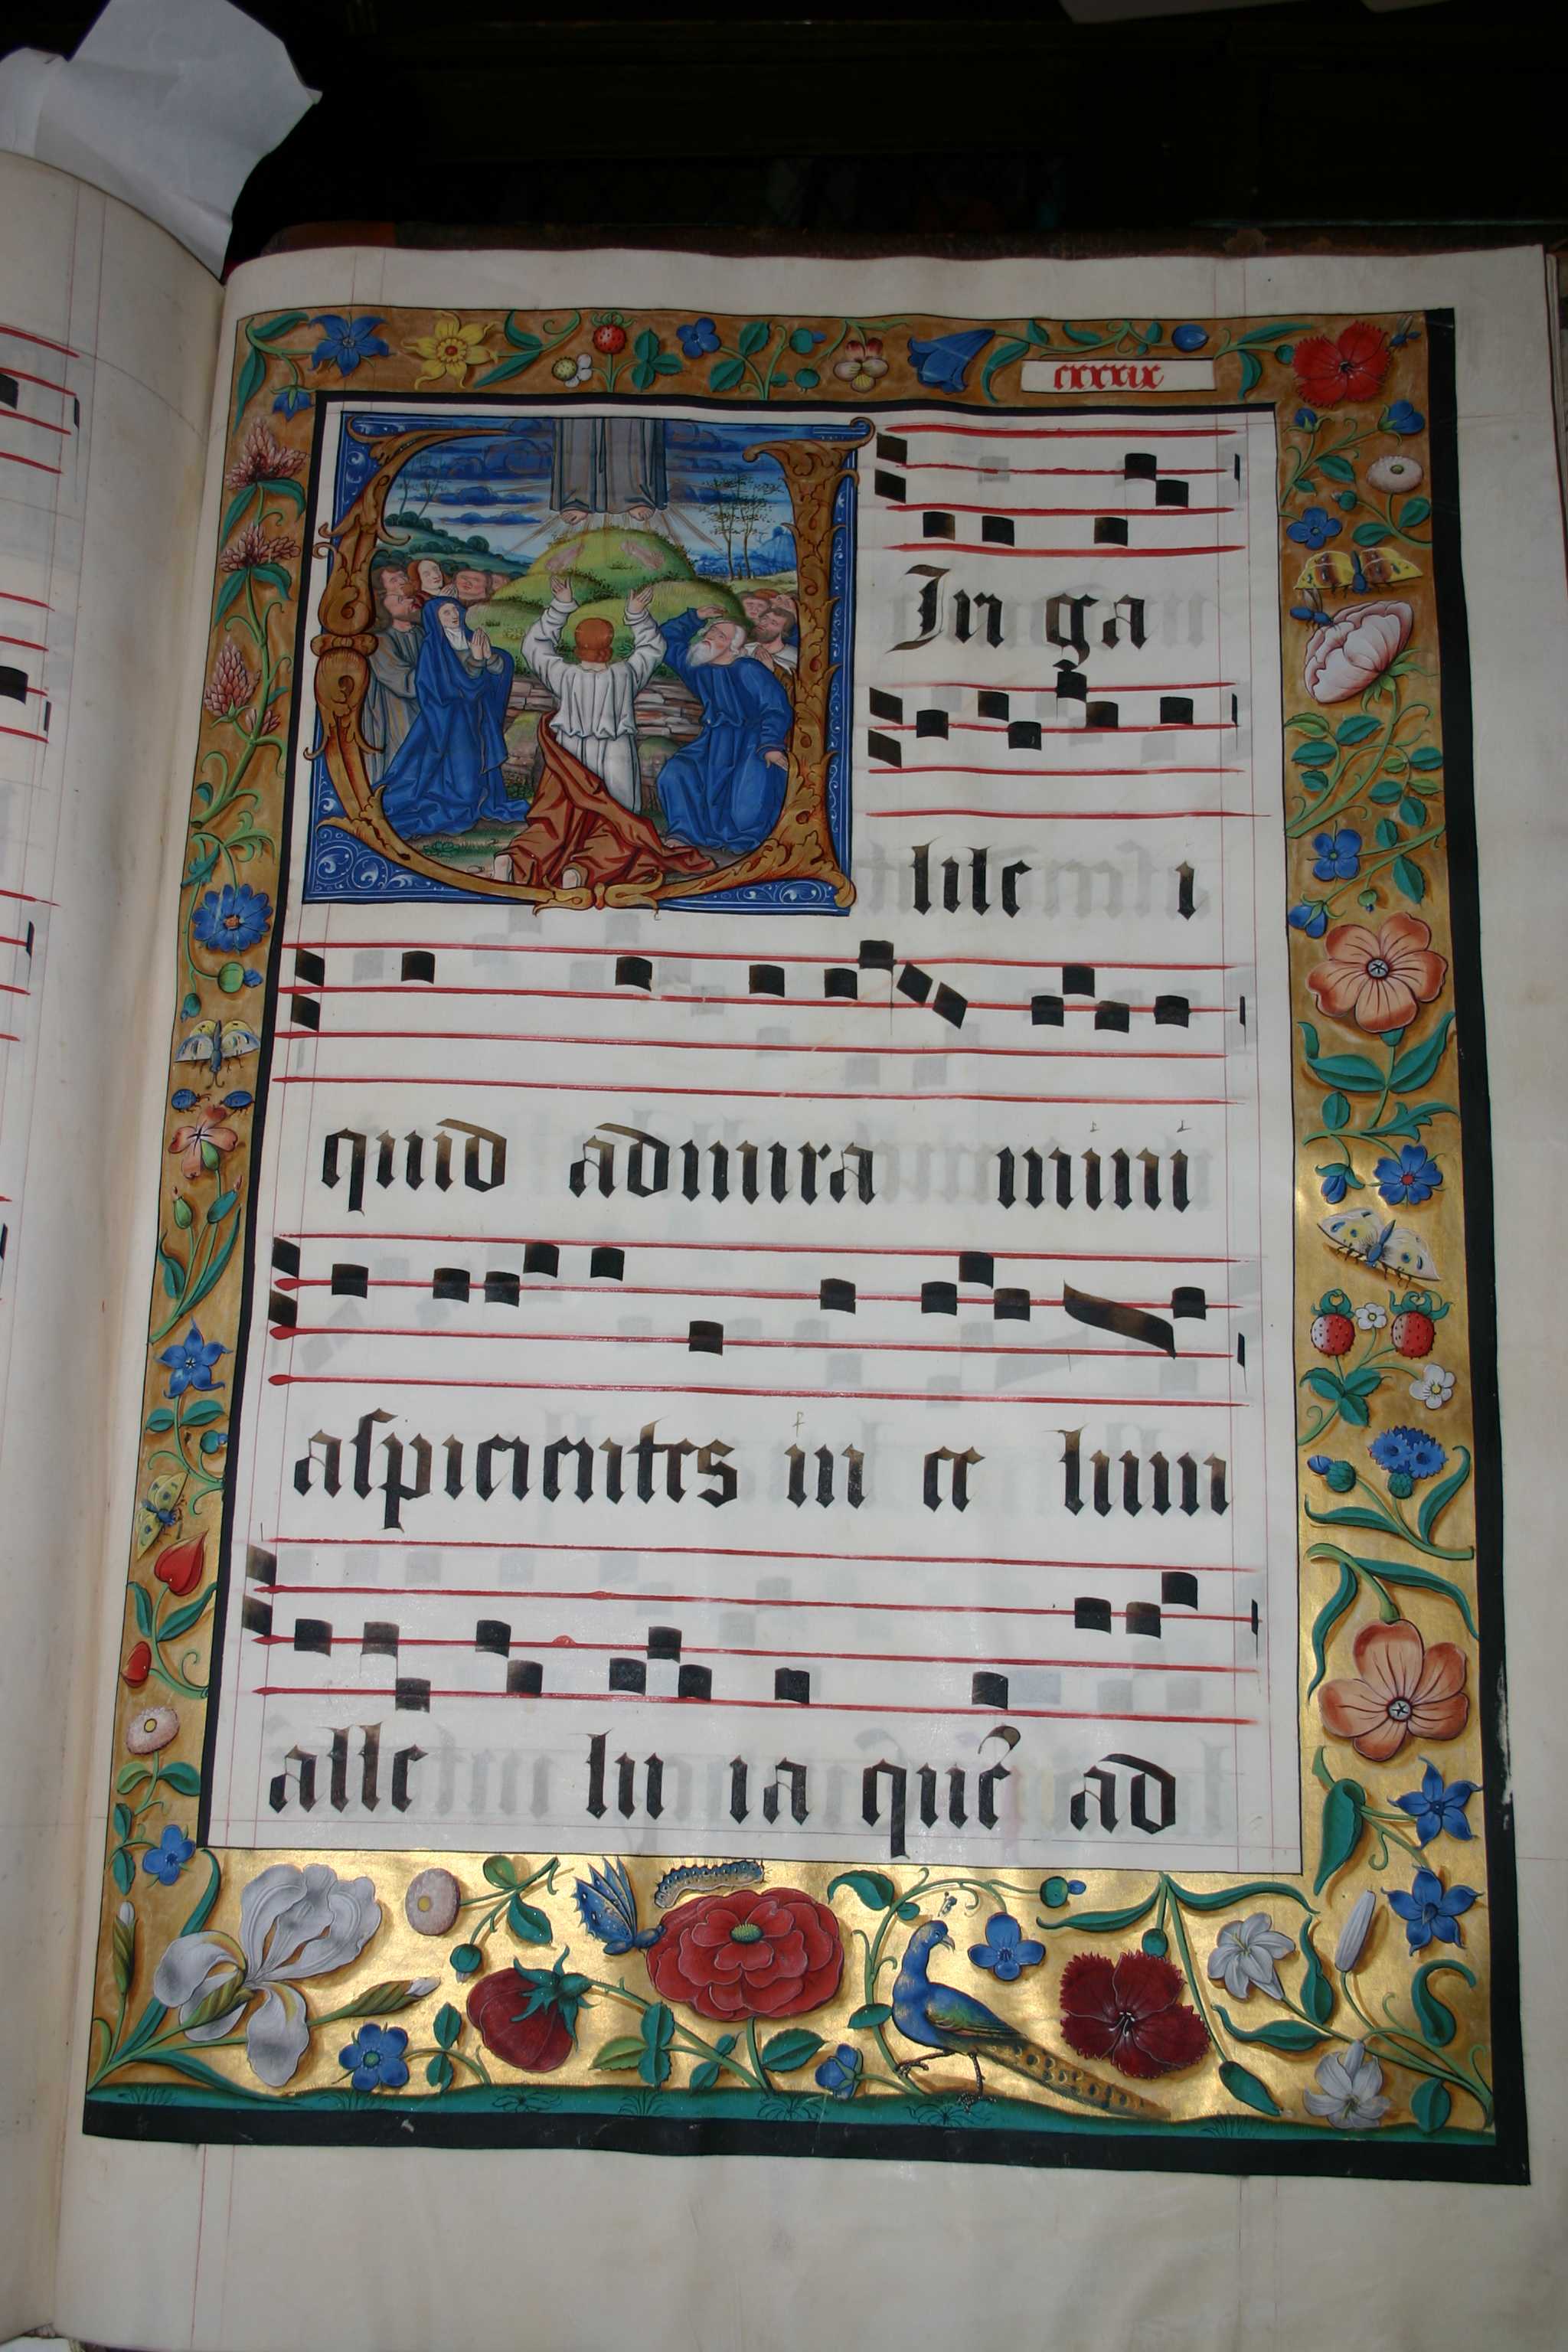 cxxxxix
V Iri ga
lile i
quid admira mini
aſpicientes in ce lum
alle lu ia quē ad